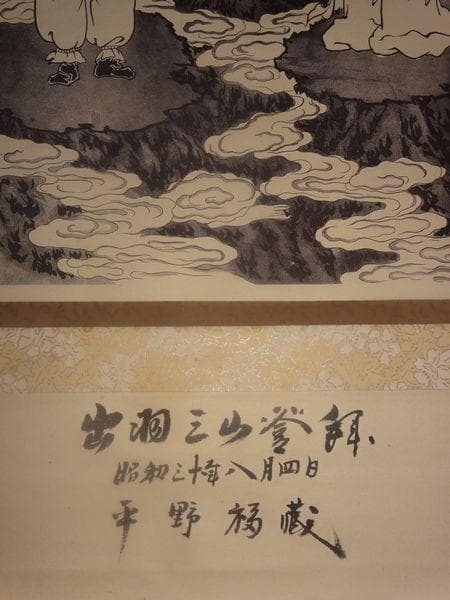 出羽三山登拝
昭和三十年八月四日
平野福蔵